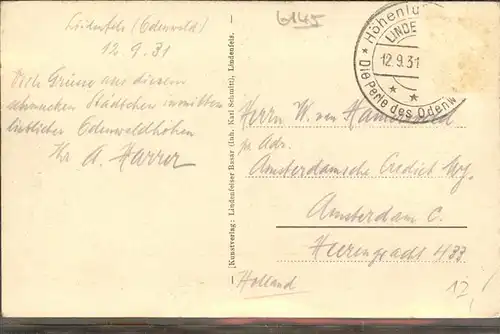 Lindenfels (Odenwald)
12.9.31
Viele Grüsse aus diesem
schmucken Städtchen inmitten
lieblicher Odenwaldhöhen
Ihr A. Harrer
[Kunstverlag: Lindenfelser Basar (Inh. Karl Schmitt), Lindenfels.
6145
LINDE
12.9.31
* Die Perle des Odenw
Herrn W. von
pr. Adr.
Amsterdamsche Crediet
Amsterdam C.
Heerengracht 433
Holland
12